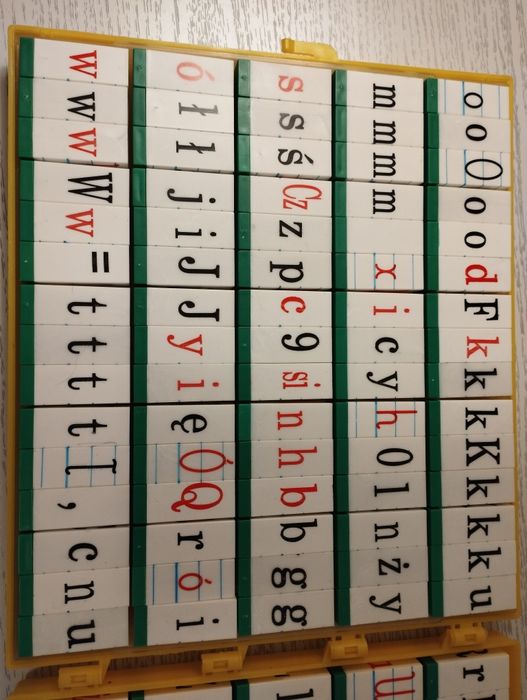 o o O o o d F k k k K k k k u
m m m m x i c y h 0 1 n ż y
s s ś Cz z p c 9 si n h b b g g
ó ł ł j i J J y i ę Ó Q r ó i
w w w W w = t t t t I , c n u